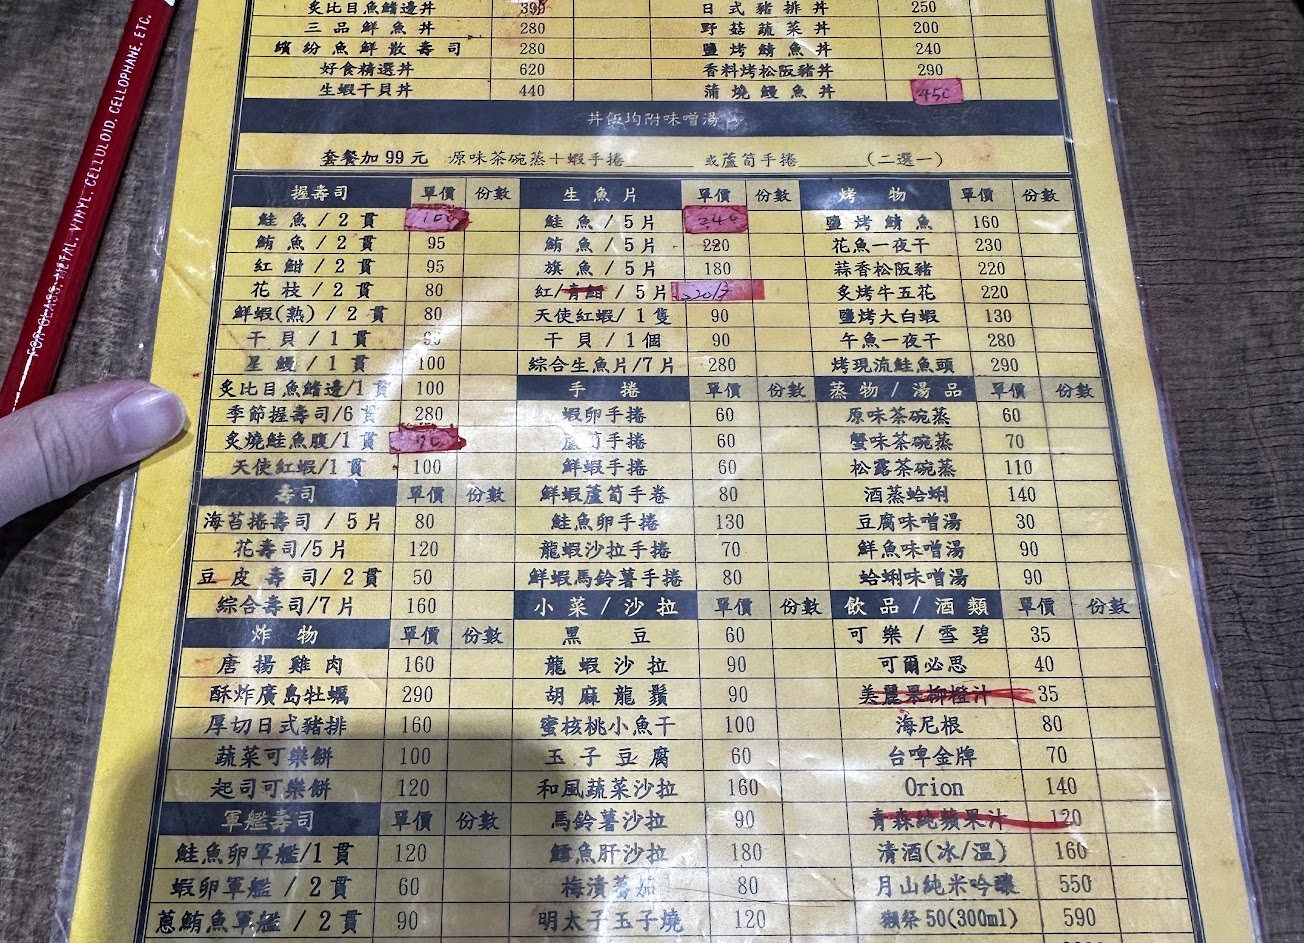 FOR GLASS, METAL, VINYL, CELLULOID, CELLOPHANE, ETC.
炙比目魚鰭邊丼 390 日式豬排丼 250
三品鮮魚丼 280 野菇蔬菜丼 200
繽紛魚鮮散壽司 280 鹽烤鯖魚丼 240
好食精選丼 620 香料烤松阪豬丼 290
生蝦干貝丼 440 蒲燒鰻魚丼 450
丼飯均附味噌湯
套餐加99元 原味茶碗蒸+蝦手捲 ____ 或蘆筍手捲 ____ (二選一)
握壽司 單價 份數 生魚片 單價 份數 烤物 單價 份數
鮭魚/2貫 100 鮭魚/5片 240 鹽烤鯖魚 160
鮪魚/2貫 95 鮪魚/5片 220 花魚一夜干 230
紅魽/2貫 95 旗魚/5片 180 蒜香松阪豬 220
花枝/2貫 80 紅/青魽/5片 炙烤牛五花 220
鮮蝦(熟)/2貫 80 天使紅蝦/1隻 90 鹽烤大白蝦 130
干貝/1貫 95 干貝/1個 90 午魚一夜干 280
星鰻/1貫 100 綜合生魚片/7片 280 烤現流鮭魚頭 290
炙比目魚鰭邊/1貫 100 手捲 單價 份數 蒸物/湯品 單價 份數
季節握壽司/6貫 280 蝦卵手捲 60 原味茶碗蒸 60
炙燒鮭魚腹/1貫 蘆筍手捲 60 蟹味茶碗蒸 70
天使紅蝦/1貫 100 鮮蝦手捲 60 松露茶碗蒸 110
壽司 單價 份數 鮮蝦蘆筍手卷 80 酒蒸蛤蜊 140
海苔捲壽司/5片 80 鮭魚卵手捲 130 豆腐味噌湯 30
花壽司/5片 120 龍蝦沙拉手捲 70 鮮魚味噌湯 90
豆皮壽司/2貫 50 鮮蝦馬鈴薯手捲 80 蛤蜊味噌湯 90
綜合壽司/7片 160 小菜/沙拉 單價 份數 飲品/酒類 單價 份數
炸物 單價 份數 黑豆 60 可樂/雪碧 35
唐揚雞肉 160 龍蝦沙拉 90 可爾必思 40
酥炸廣島牡蠣 290 胡麻龍鬚 90 美麗果柳橙汁 35
厚切日式豬排 160 蜜核桃小魚干 100 海尼根 80
蔬菜可樂餅 100 玉子豆腐 60 台啤金牌 70
起司可樂餅 120 和風蔬菜沙拉 160 Orion 140
軍艦壽司 單價 份數 馬鈴薯沙拉 90 青森純蘋果汁 120
鮭魚卵軍艦/1貫 120 鱈魚肝沙拉 180 清酒(冰/溫) 160
蝦卵軍艦/2貫 60 梅漬蕃茄 80 月山純米吟釀 550
蔥鮪魚軍艦/2貫 90 明太子玉子燒 120 獺祭50(300ml) 590